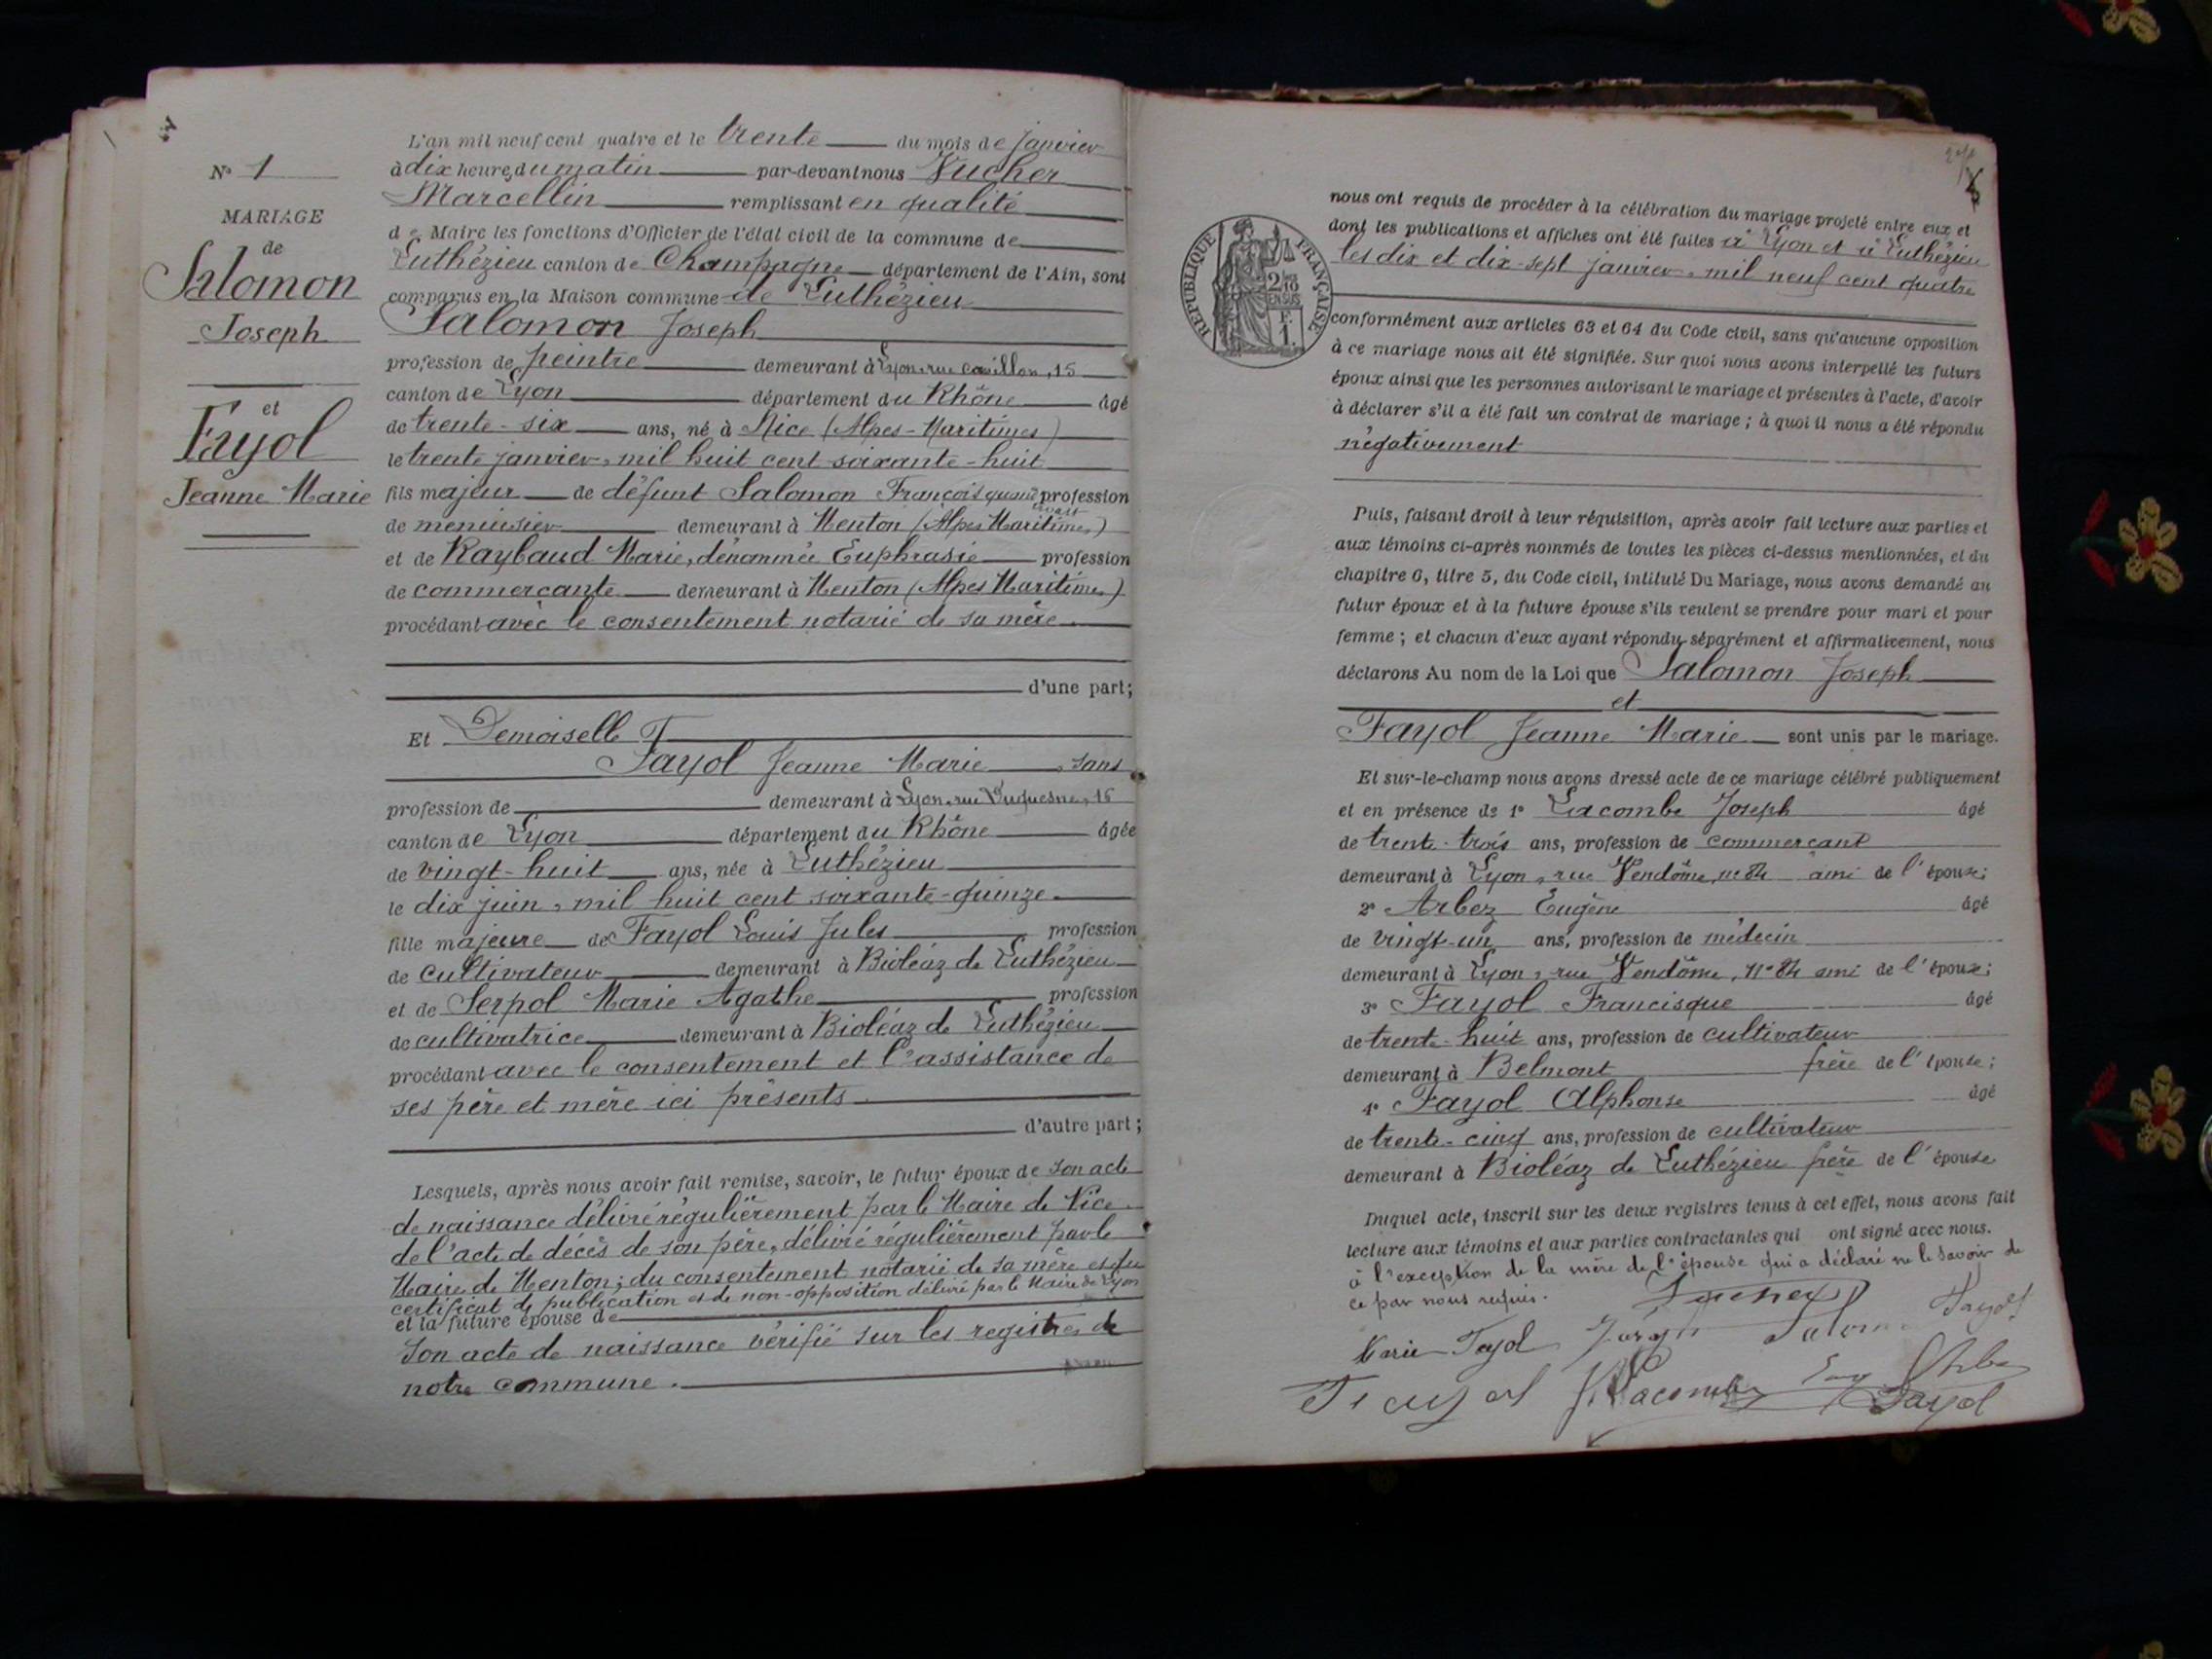 N° 1
MARIAGE
de
Salomon
Joseph
et
Fayol
Jeanne Marie
L'an mil neuf cent quatre et le trente du mois de janvier
à dix heures du matin par-devant nous Vucher
Marcellin remplissant en qualité
de Maire les fonctions d'Officier de l'état civil de la commune de
Luthézieu canton de Champagne département de l'Ain, sont
comparus en la Maison commune de Luthézieu
Salomon Joseph
profession de peintre demeurant à Lyon, rue 15
canton de Lyon département du Rhône âgé
de trente-six ans, né à Nice (Alpes-Maritimes)
le trente janvier, mil huit cent soixante-huit
fils majeur de défunt Salomon François profession
de menuisier demeurant à Menton (Alpes Maritimes)
et de Raybaud Marie, dénommée Euphrasie profession
de commerçante demeurant à Menton (Alpes Maritimes)
procédant avec le consentement notarié de sa mère
d'une part;
Et Demoiselle
Fayol Jeanne Marie, sans
profession de demeurant à Lyon, rue Duquesne, 16
canton de Lyon département du Rhône âgée
de vingt-huit ans, née à Luthézieu
le dix juin, mil huit cent soixante-quinze
fille majeure de Fayol Louis Jules profession
de cultivateur demeurant à Bioléaz de Luthézieu
et de Serpol Marie Agathe profession
de cultivatrice demeurant à Bioléaz de Luthézieu
procédant avec le consentement et l'assistance de
ses père et mère ici présents
d'autre part;
Lesquels, après nous avoir fait remise, savoir, le futur époux de son acte
de naissance délivré régulièrement par le Maire de Nice
de l'acte de décès de son père, délivré régulièrement par le
Maire de Menton; du consentement notarié de sa mère et du
certificat de publication et de non-opposition délivré par le Maire de Lyon
et la future épouse de
son acte de naissance vérifié sur les registres de
notre commune.
RÉPUBLIQUE FRANÇAISE
2/10
EN SUS
F.
1.
nous ont requis de procéder à la célébration du mariage projeté entre eux et
dont les publications et affiches ont été faites à Lyon et à Luthézieu
les dix et dix-sept janvier, mil neuf cent quatre
conformément aux articles 63 et 64 du Code civil, sans qu'aucune opposition
à ce mariage nous ait été signifiée. Sur quoi nous avons interpellé les futurs
époux ainsi que les personnes autorisant le mariage et présentes à l'acte, d'avoir
à déclarer s'il a été fait un contrat de mariage; à quoi il nous a été répondu
négativement
Puis, faisant droit à leur réquisition, après avoir fait lecture aux parties et
aux témoins ci-après nommés de toutes les pièces ci-dessus mentionnées, et du
chapitre 6, titre 5, du Code civil, intitulé Du Mariage, nous avons demandé au
futur époux et à la future épouse s'ils veulent se prendre pour mari et pour
femme; et chacun d'eux ayant répondu séparément et affirmativement, nous
déclarons Au nom de la Loi que Salomon Joseph
et
Fayol Jeanne Marie sont unis par le mariage.
Et sur-le-champ nous avons dressé acte de ce mariage célébré publiquement
et en présence de 1° Lacombe Joseph âgé
de trente-trois ans, profession de commerçant
demeurant à Lyon, rue Vendôme, n° 84 ami de l'épouse;
2° Arbez Eugène âgé
de vingt-un ans, profession de médecin
demeurant à Lyon, rue Vendôme, N° 84 ami de l'époux;
3° Fayol Francisque âgé
de trente-huit ans, profession de cultivateur
demeurant à Belmont frère de l'épouse;
4° Fayol Alphonse âgé
de trente-cinq ans, profession de cultivateur
demeurant à Bioléaz de Luthézieu frère de l'épouse
Duquel acte, inscrit sur les deux registres tenus à cet effet, nous avons fait
lecture aux témoins et aux parties contractantes qui ont signé avec nous.
à l'exception de la mère de l'épouse qui a déclaré ne le savoir de
ce par nous requis.
Vucher
Marie Fayol Joseph Salomon Fayol
Fayol J. Lacombe Eug Arbez
Fayol